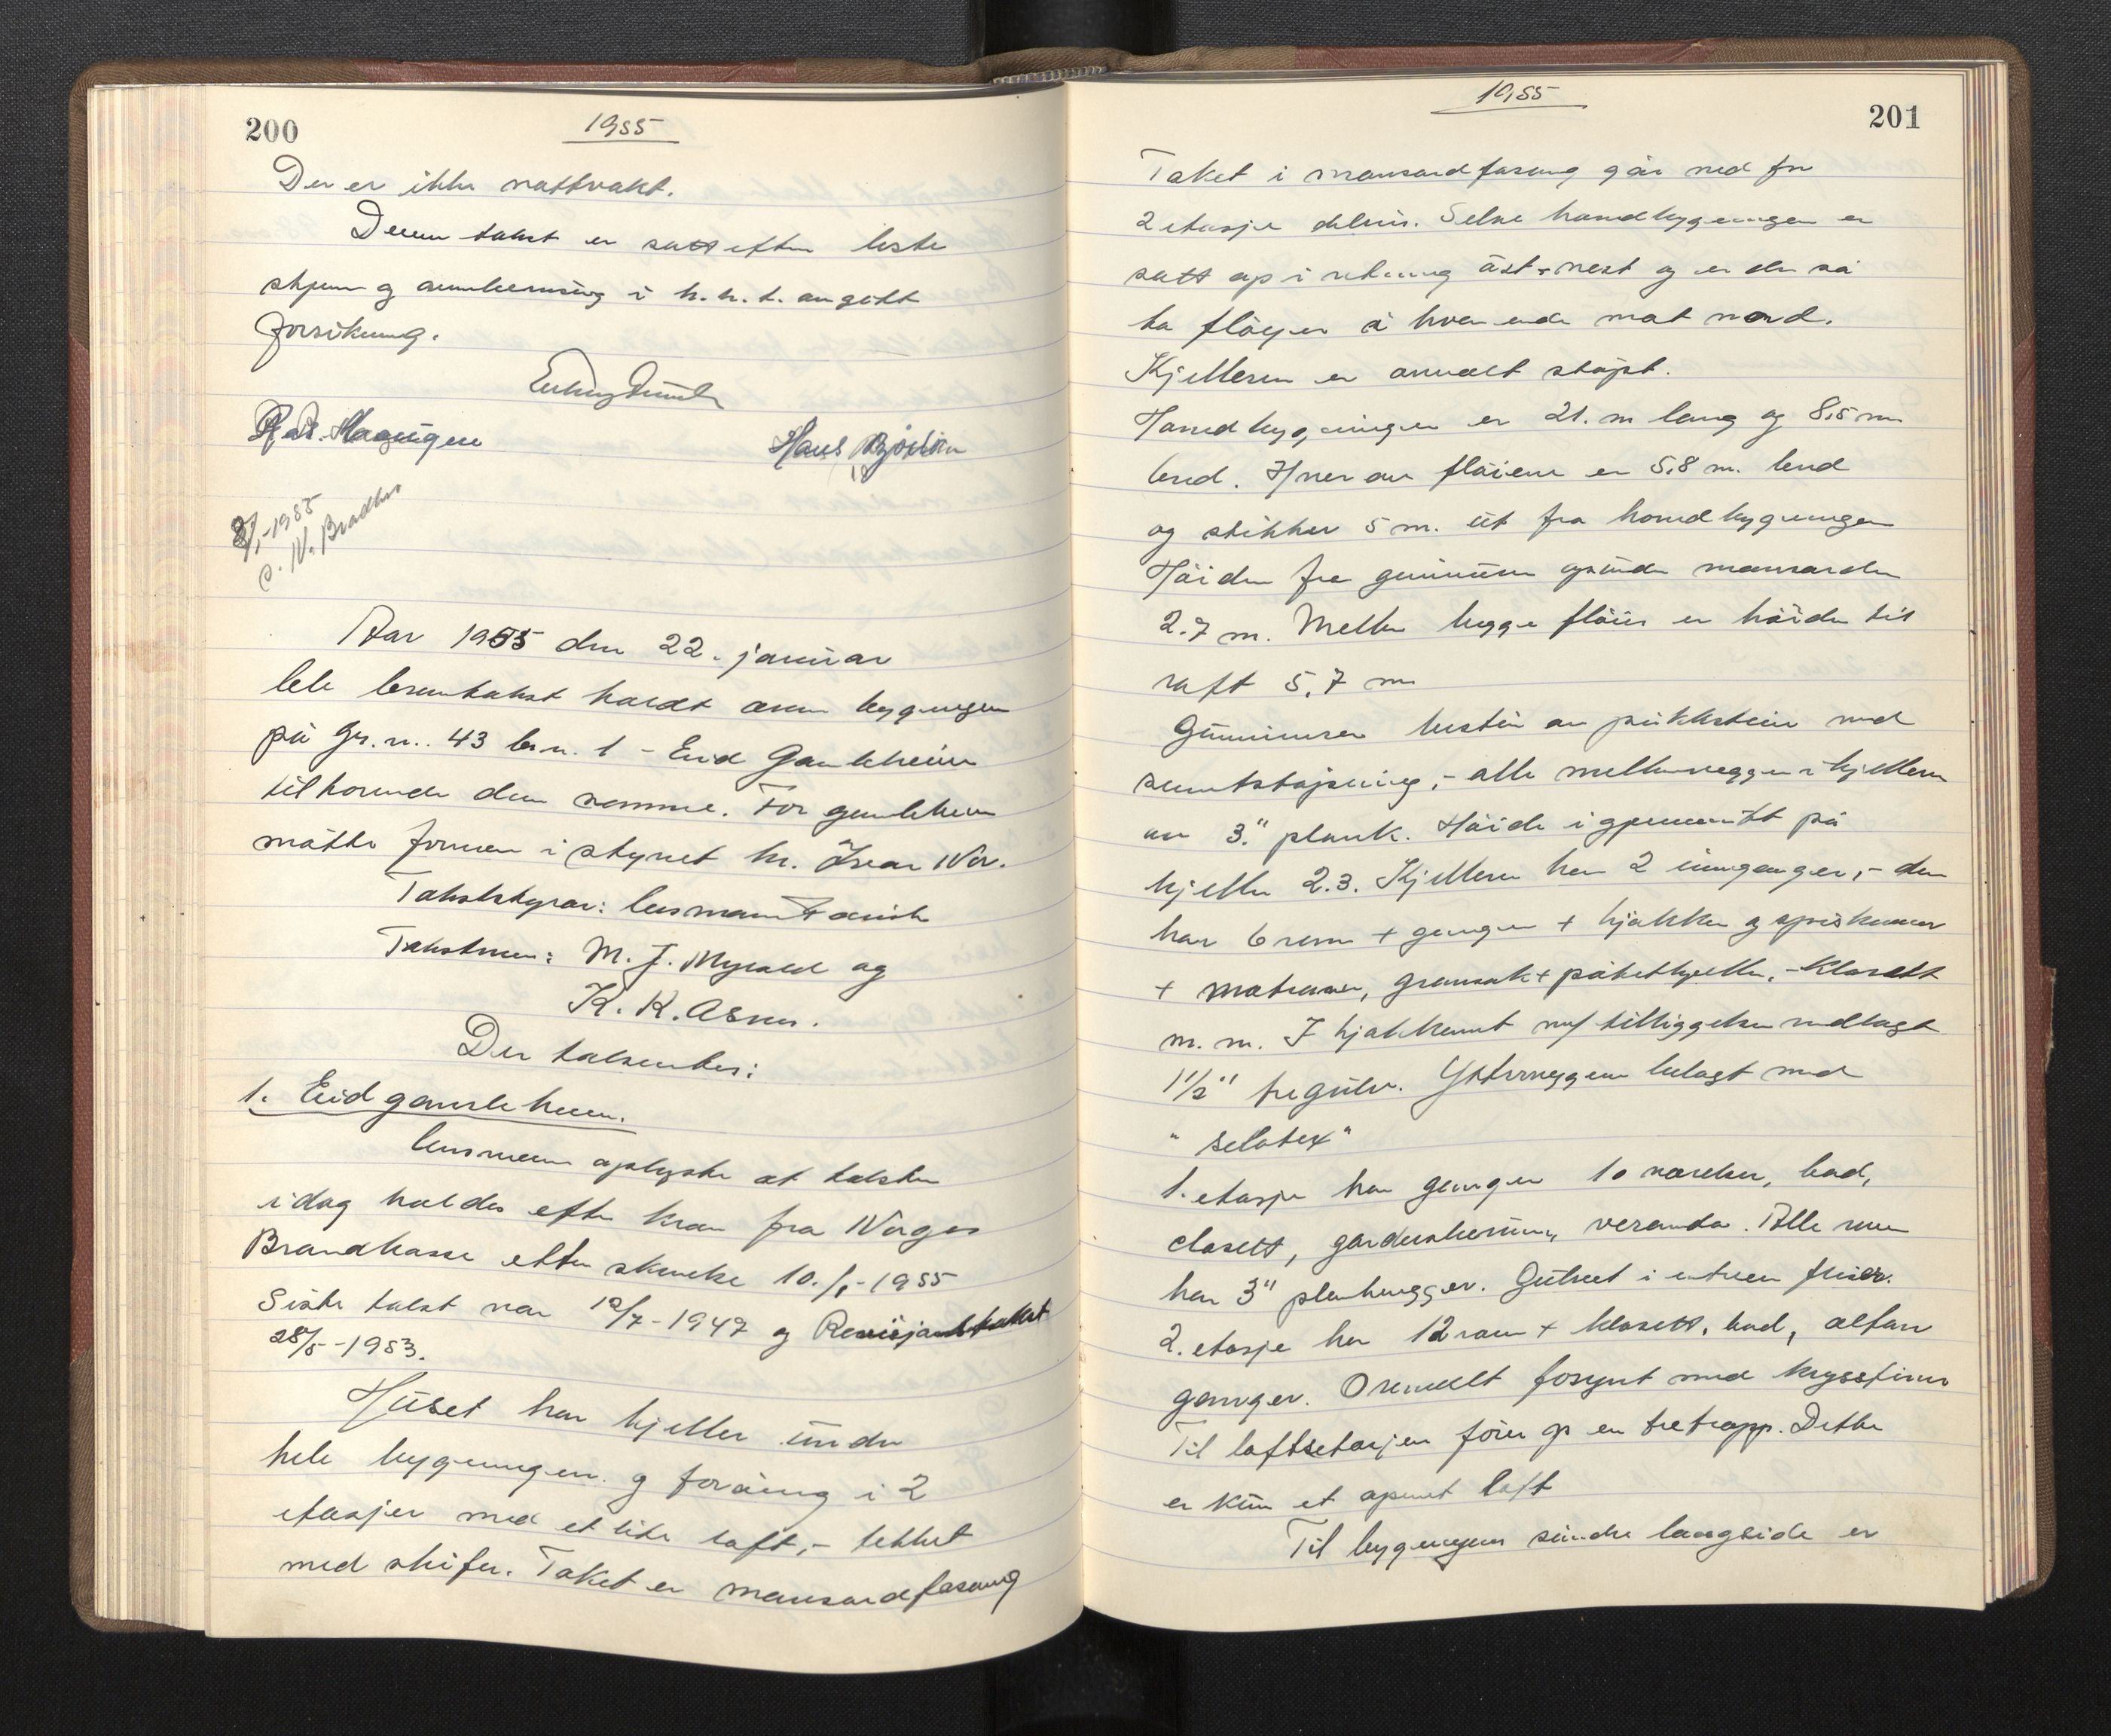 200
1955
Der er ikke nattvakt.
Denne takst er satt efter beste
skjønn og overbevisning i h.h.t. avgitt
forsikring.
Hans
3/1-1955
C. N. Bradhus
Aar 1955 den 22. januar
ble branntakst holdt over bygningen
på Gr.n. 43 br.n. 1 - Eid Gamleheim
tilhørende den samme. For gamleheimen
møtte formann i styret hr. Ivar Nor.
Takststyrar: lensmann
Takstmenn: M. J. Myklebd og
K. K. Asnes.
Der takserdes:
1. Eid gamleheim.
Lensmannen oplyste at taksten
idag holdes efter krav fra Norges
Brandkasse efter skrivelse 10./1-1955
Siste takst var 12/7-1947 og Revisjonstakst
28/5-1953.
Huset har kjeller under
hele bygningen og forøvrig i 2
etasjer med et lite loft,- tekket
med skifer. Taket er mansardfasong
1955
201
Taket i mansardfasong går ned for
2 etasje delvis. Selve hovedbygningen er
satt op i retning øst-vest og er der så
to fløyer i hver ende mot nord.
Kjelleren er overalt støpt.
Hovedbygningen er 21. m lang og 8,5 m
bred. Hver av fløiene er 5,8 m. bred
og stikker 5 m. ut fra hovedbygningen
Høiden fra grunnmur opunder mansarden
2.7 m. Mellem begge fløier er høiden til
raft 5,7 m
Grunnmuren består av pukkstein med
sementstøpning,- alle mellemvegger i kjelleren
av 3." plank. Høide igjennemsnitt på
kjeller 2.3. Kjelleren har 2 innganger,- den
har 6 rom + ganger + kjøkken og spiskammer
+ matrom, grønsak + potetkjeller,- Klosett
m. m. I kjøkkenet m/ tilliggelser nedlagt
1 1/2" tregulv. Ytterveggene belagt med
" selotex"
1. etasje har ganger 10 værelser, bad,
closett, garderoberum, veranda. Alle rum
har 3" plankvegger. Gulvet i entreen fliser.
2. etasje har 12 rom + klosett, bad, altan
ganger. Overalt forsynt med kryssfiner
Til loftsetasjen fører op en tretrapp. Dette
er kun et åpent loft
Til bygningens søndre langside er